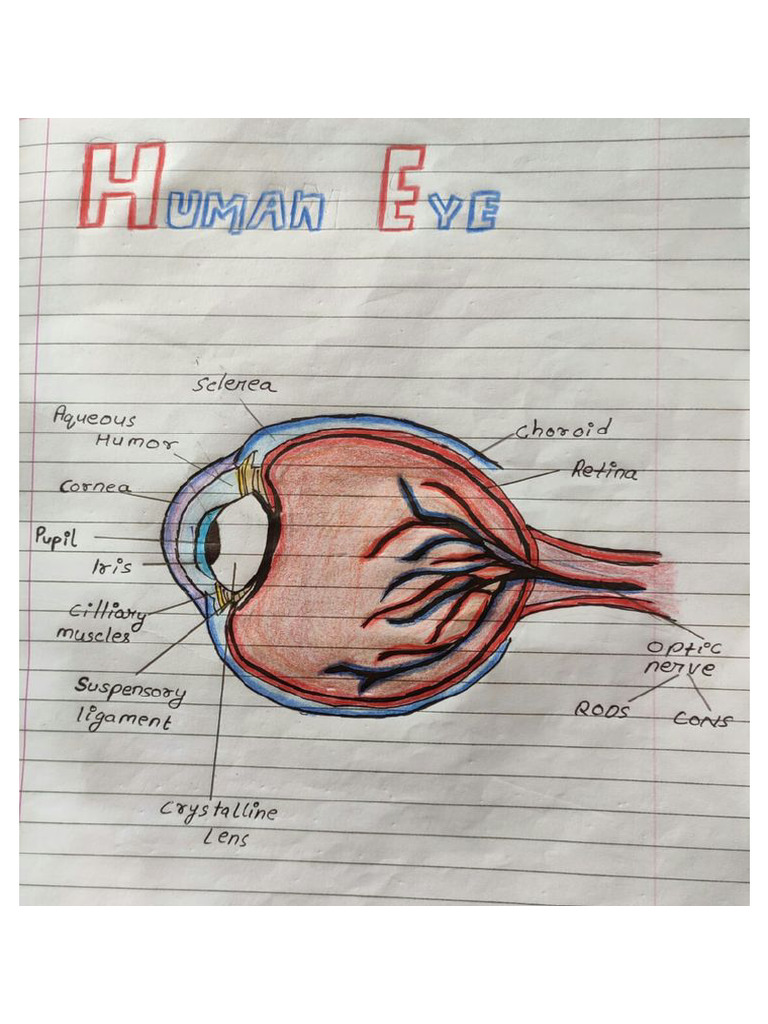 HUMAN EYE
Sclerea
Aqueous
Humor
Choroid
Retina
Cornea
Pupil
Iris
Cilliary
muscles
Optic
nerve
Suspensory
ligament
RODS
CONS
Crystalline
Lens